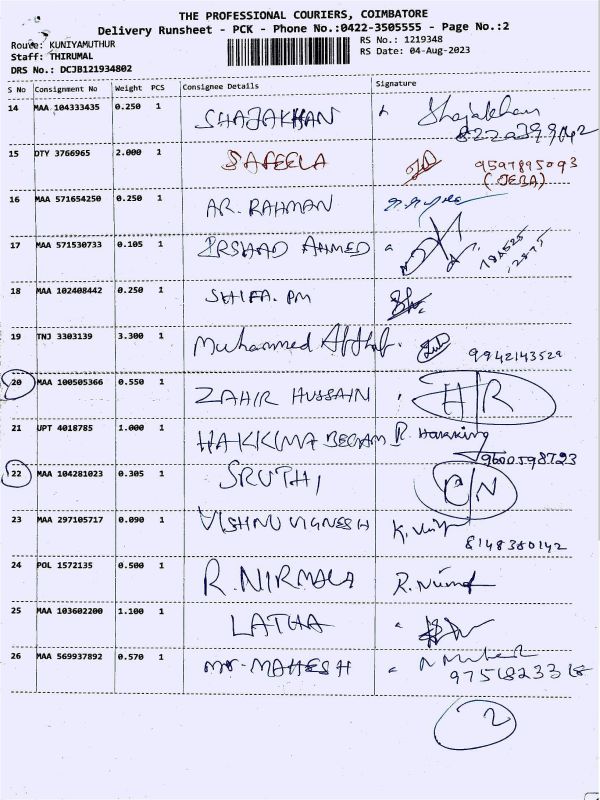 THE PROFESSIONAL COURIERS, COIMBATORE
Delivery Runsheet - PCK - Phone No.:0422-3505555 - Page No.:2
Route: KUNIYAMUTHUR
RS No.: 1219348
Staff: THIRUMAL
RS Date: 04-Aug-2023
DRS No.: DCJB121934802
S No Consignment No Weight PCS Consignee Details Signature
14 MAA 104333435 0.250 1 SHAJAKHAN Shajakhan
15 DTY 3766965 2.000 1 SAFEELA 9597895093
(JEBA)
16 MAA 571654250 0.250 1 AR. RAHMAN
17 MAA 571530733 0.105 1 IRSHAD AHMED
18 MAA 102408442 0.250 1 SHIFA. PM
19 TNJ 3303139 3.300 1 Muhammed 9942143529
20 MAA 100505366 0.550 1 ZAHIR HUSSAIN HR
21 UPT 4018785 1.000 1 HAKKIMA BEGAM R.
9600598723
22 MAA 104281023 0.305 1 SRUTHI CN
23 MAA 297105717 0.090 1 VISHNU VIGNESH K.
8148380142
24 POL 1572135 0.500 1 R. NIRMALA R.
25 MAA 103602200 1.100 1 LATHA
26 MAA 569937892 0.570 1 Mr- MAHESH
2